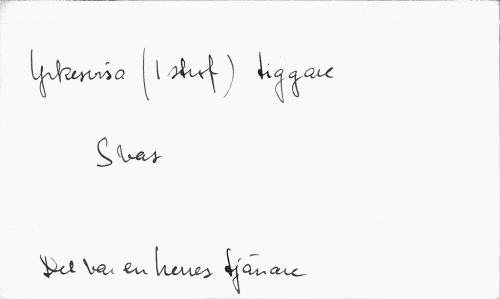 Yrkesvisa (1 strof) tiggare
Svar
Det var en herres tjänare